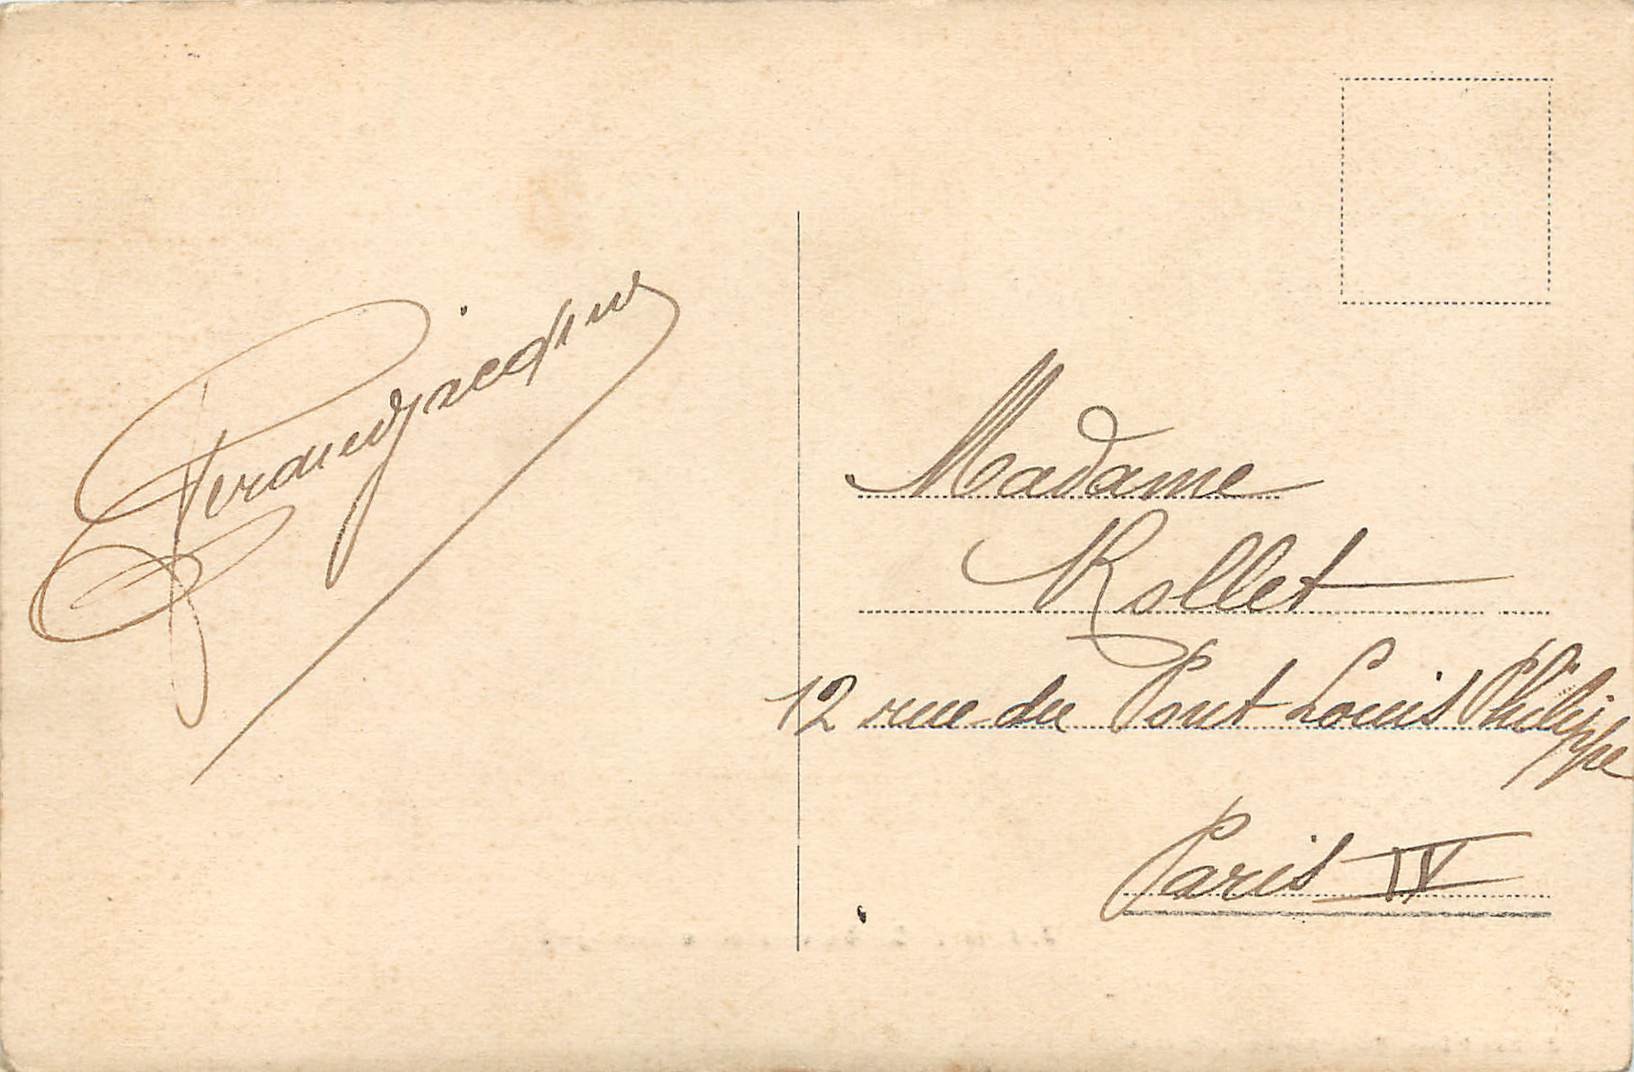 Madame
Rollet
12 rue du Pont Louis Philippe
Paris IV